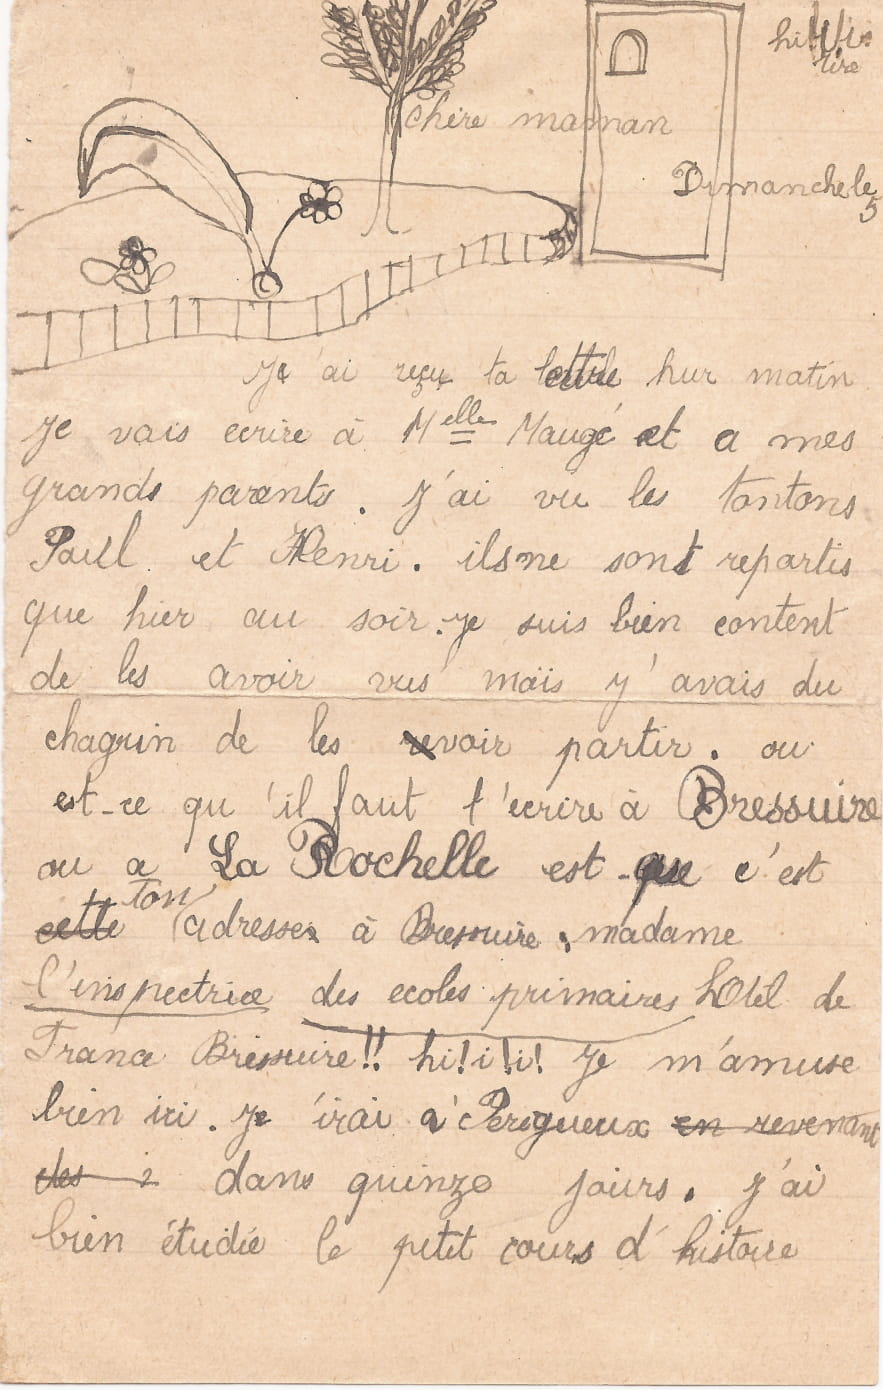 chère maman
Dimanche le
5
Je 'ai reçu ta lettre hur matin
Je vais ecrire à Melle Maugé et a mes
grands parents. J'ai vu les tontons
Paul et Henri. ils ne sont repartis
que hier au soir. je suis bien content
de les avoir vus maïs y'avais du
chagrin de les voir partir. ou
est-ce qu'il faut t'ecrire à Bressuire
ou a La Rochelle est-que c'est
cette ton adresse à Bressuire. madame
l'inspectrice des ecoles primaires hOtel de
France Bressuire!! hi!i!i! Je m'amuse
bien ici. Je 'irai à Perigueux en revenant
des dans quinze jours. J'ai
bien étudié le petit cours d'histoire